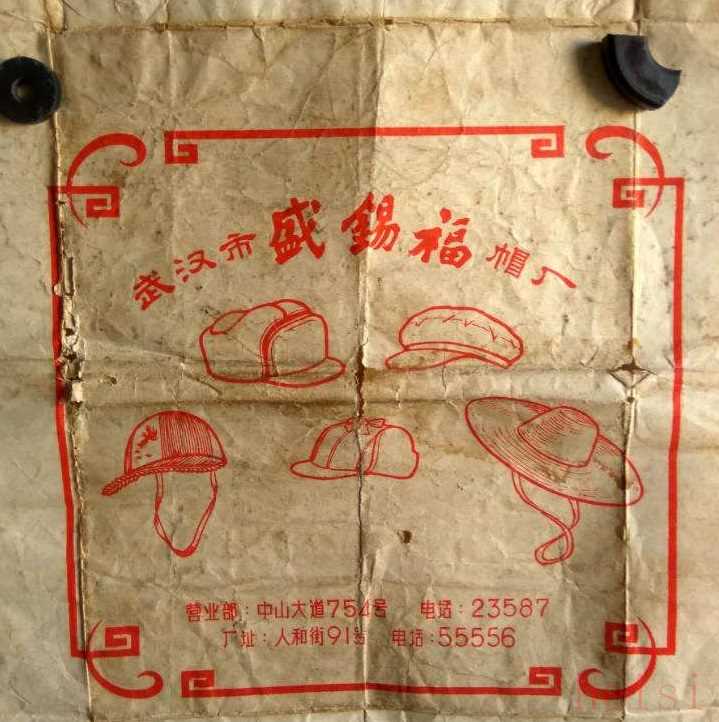 武汉市盛錫福帽厂
营业部：中山大道754号 电话：23587
厂址：人和街91号 电话：55556